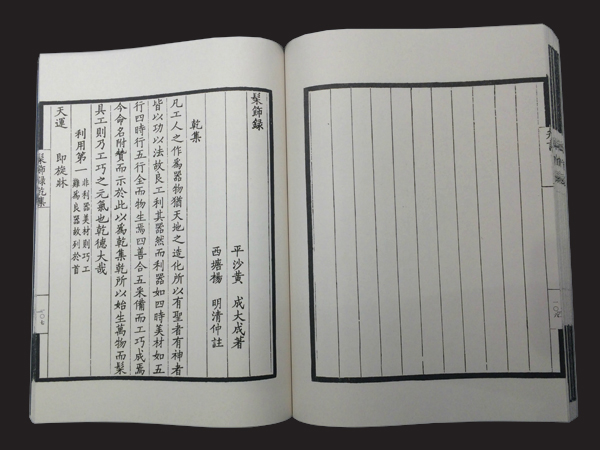 髹飾錄
平沙黃　成大成著
西塘楊　明清仲註
乾集
凡工人之作爲器物猶天地之造化所以有聖者有神者
皆以功以法故良工利其器然而利器如四時美材如五
行四時行五行全而物生焉四善合五采備而工巧成焉
今命名附贊而示於此以爲乾集乾所以始生萬物而髹
具工則乃工巧之元氣也乾德大哉
利用第一
非利器美材則巧工
難爲良器故列於首
天運　即旋牀
髹飾錄乾集
一〇七